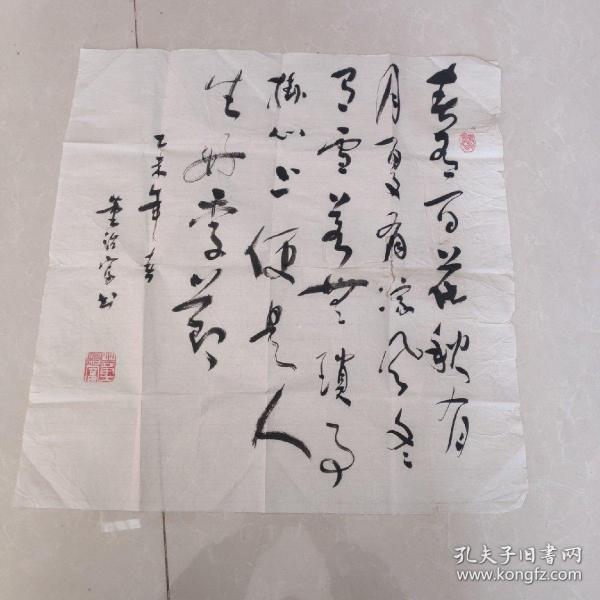 春有百花秋有
月夏有凉风冬
有雪若无琐事
挂心上便是人
生好季节
乙未年春
董治家书
孔夫子旧书网
www.kongfz.com